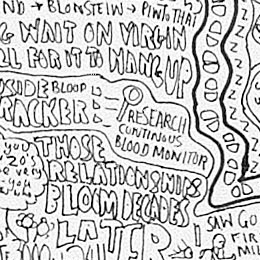 ND → BLONSTEIN → PINTO THAT
G WAIT ON VIRGIN
LL FOR IT TO HANG UP
OSUDE BLOOD
RACKER
RESEARCH
CONTINUOUS
BLOOD MONITOR
YOU
20's
THOSE
RELATIONSHIPS
BLOOM DECADES
LATER!
SAW GO
FIR
MIL